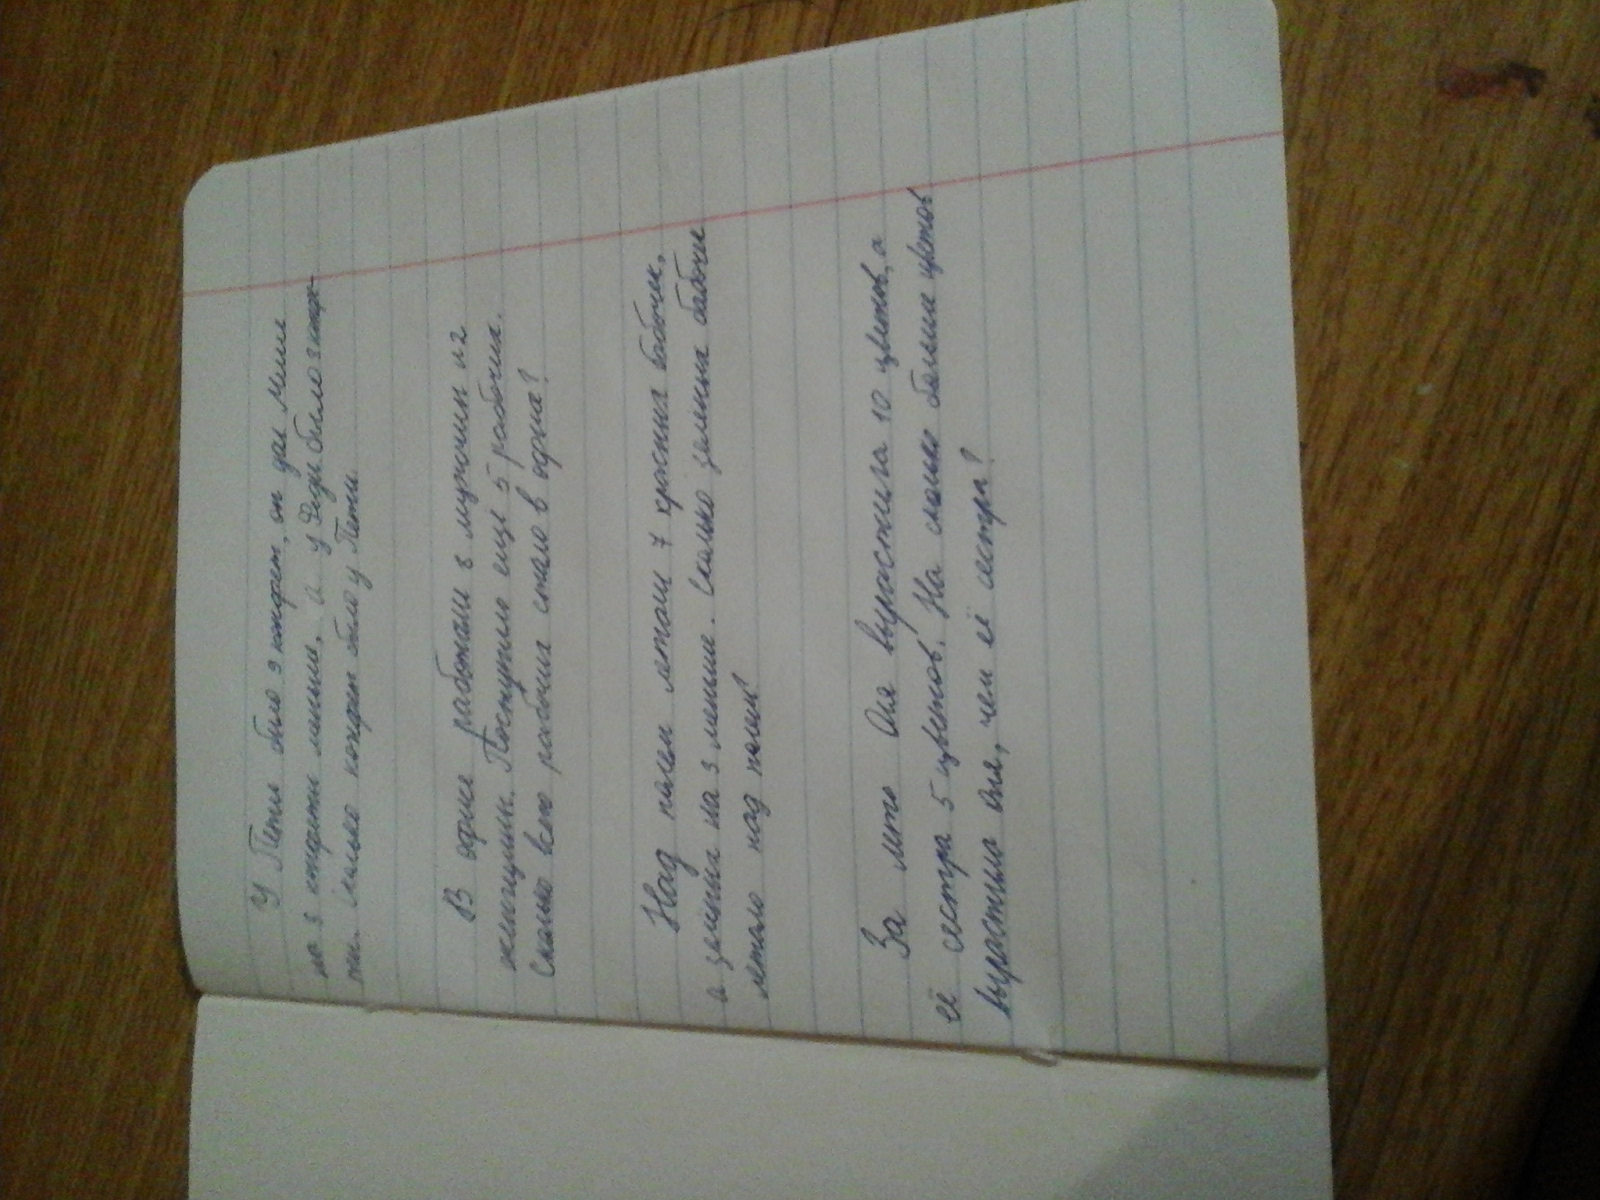 У Пети было 9 конфет, он дал Мише
на 3 конфети меньше, а у Феди было 3 конфе-
ти. Сколько конфет было у Пети.
В офисе работали 8 мужчин и 2
женщины. Поступили еще 5 рабочих.
Сколько всего рабочих стало в офисе?
Над полем летали 7 красных бабочек,
а зелёных на 3 меньше. Сколько зелёных бабочек
летало над полем?
За лето Оля вырастила 10 цветов, а
её сестра 5 цветов. На сколько больше цветов
вырастила Оля, чем её сестра?